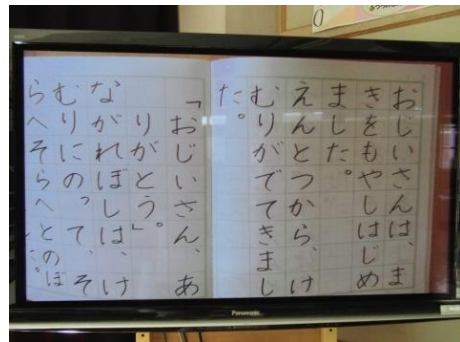 おじいさんは、ま
きをもやしはじめ
ました。
えんとつから、け
むりがでてきまし
た。
「おじいさん、あ
りがとう」。
ながれぼしは、け
むりにのって、そ
らへそらへとのぼ
Panasonic